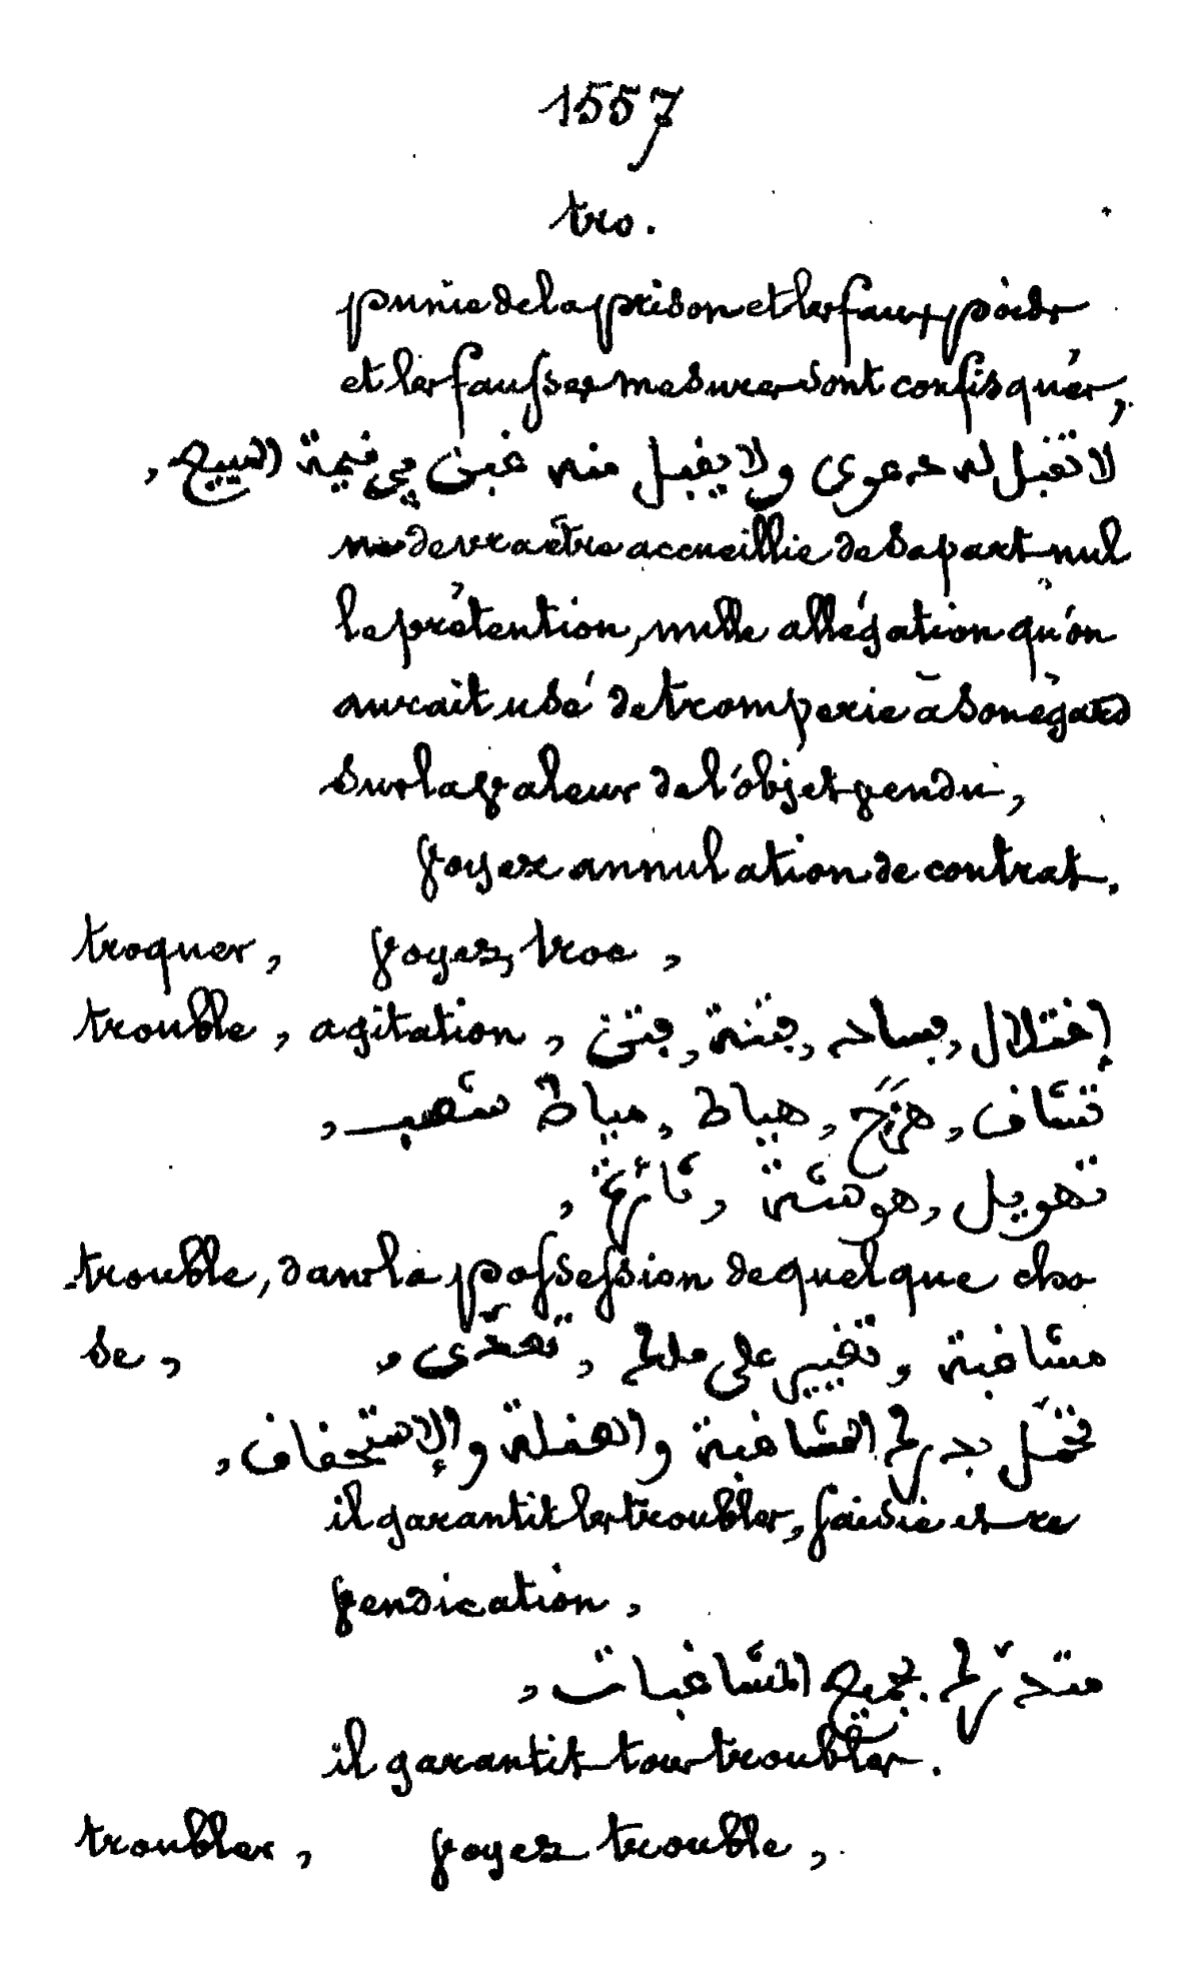 1557
tro.
punie de la prison et les faux poids
et les fausses mesures sont confisqués,
لا تقبل له دعوى ولا يقبل منه غبن في قيمة المبيع,
ne devra être accueillie de sa part nul
le prétention, nulle allégation qu'on
aurait usé de tromperie à son égard
sur la valeur de l'objet vendu,
voyez annulation de contrat.
troquer, voyez, troc,
trouble, agitation, إختلال, فساد, فتنة, فتن
تشاف, هرج, هياط, مياط شغب,
تهويل, هوشة, ثائرة,
trouble, dans la possession de quelque cho
se, مشاغبة, تغيير على ملك, تعدّى,
تحمّل بدرك المشاغبة والعقلة والإستحقاق,
il garantit les troubles, saisie et re
vendication,
متدرّك بجميع المشاغبات,
il garantit tous troubles.
troubler, voyez trouble,